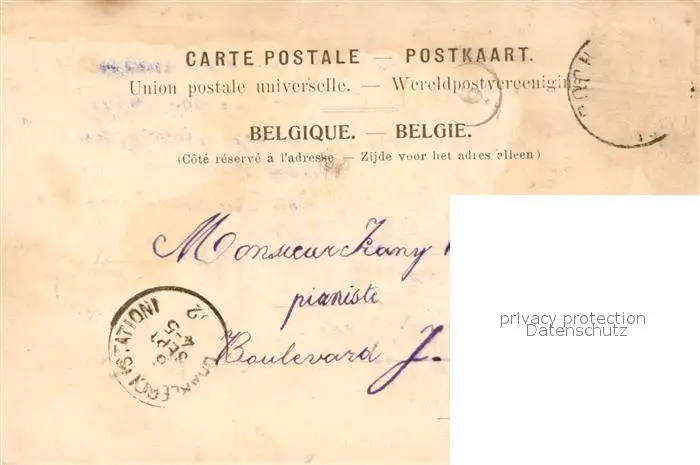 CARTE POSTALE — POSTKAART.
Union postale universelle. — Wereldpostvereeniging
BELGIQUE. — BELGIE.
(Côté réservé à l'adresse — Zijde voor het adres alleen)
Monsieur
pianiste
Boulevard J.
privacy protection
Datenschutz
(STATION)
SEPT
4-5